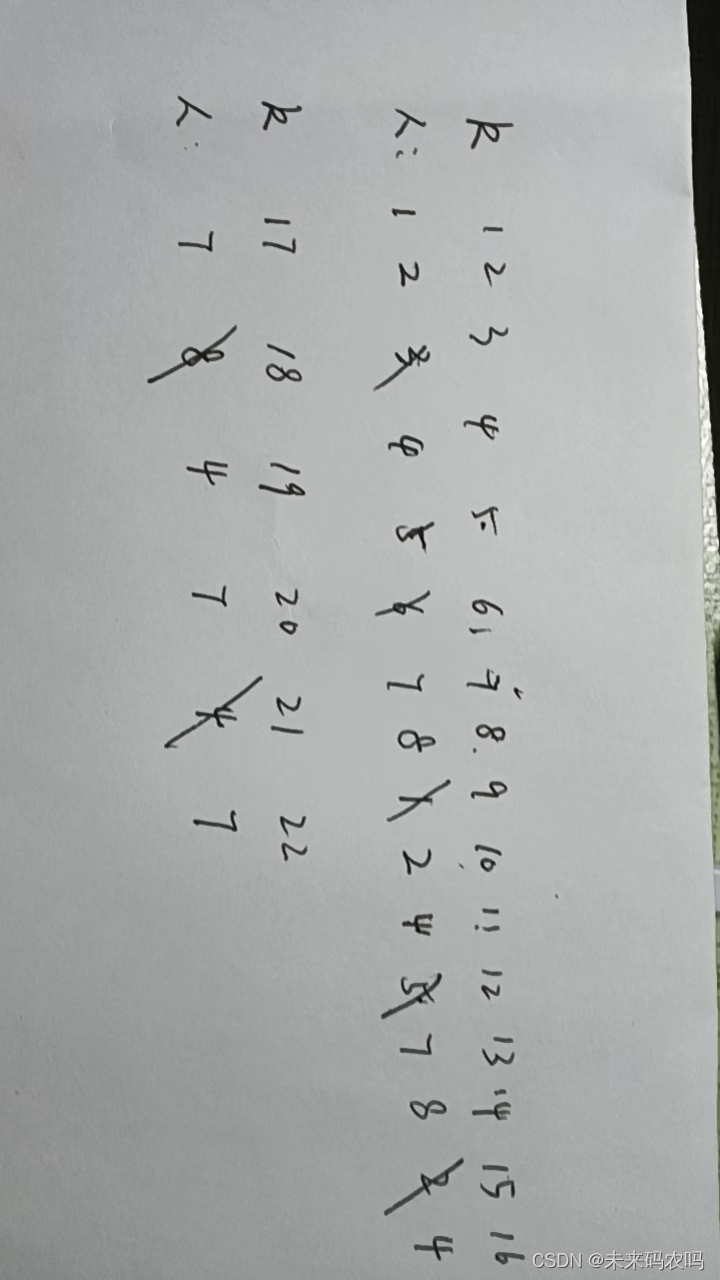 k 1 2 3 4 5. 6. 7 8. 9 10 11 12 13 14 15 16
人: 1 2 3 4 5 6 7 8 1 2 4 5 7 8 2 4
k 17 18 19 20 21 22
人: 7 8 4 7 4 7
CSDN @未来码农吗